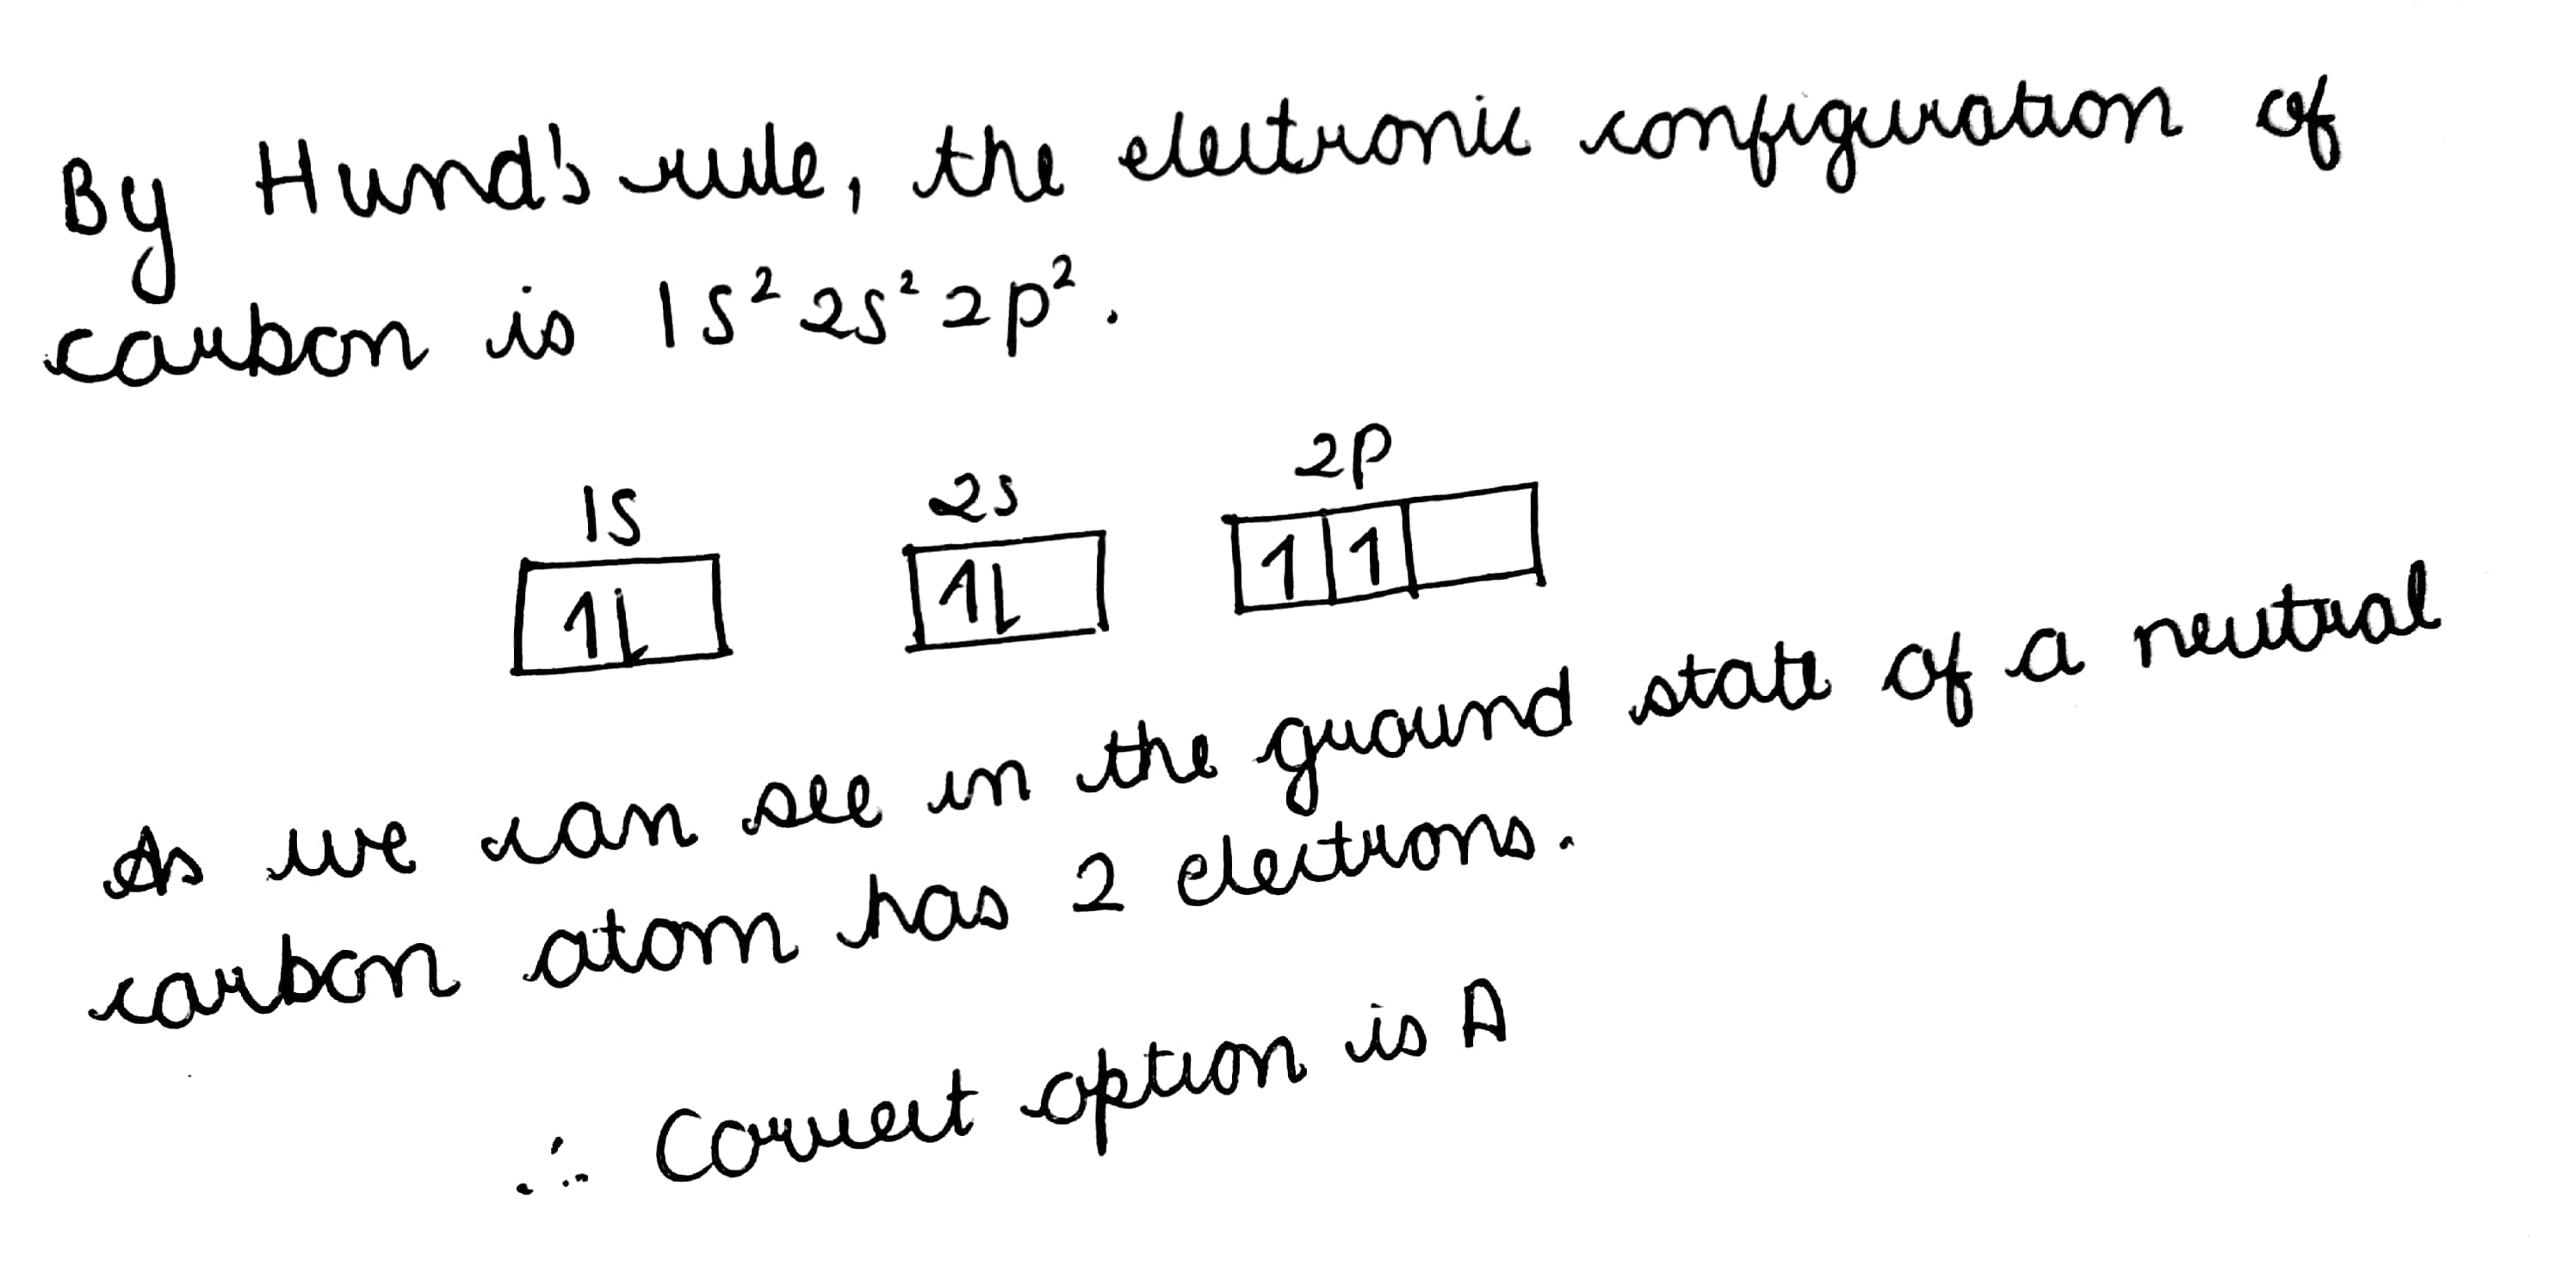 By Hund's rule, the electronic configuration of
carbon is 1s² 2s² 2p².
1s 2s 2p
1⇂ 1⇂ 1 1
As we can see in the ground state of a neutral
carbon atom has 2 electrons.
∴ Correct option is A